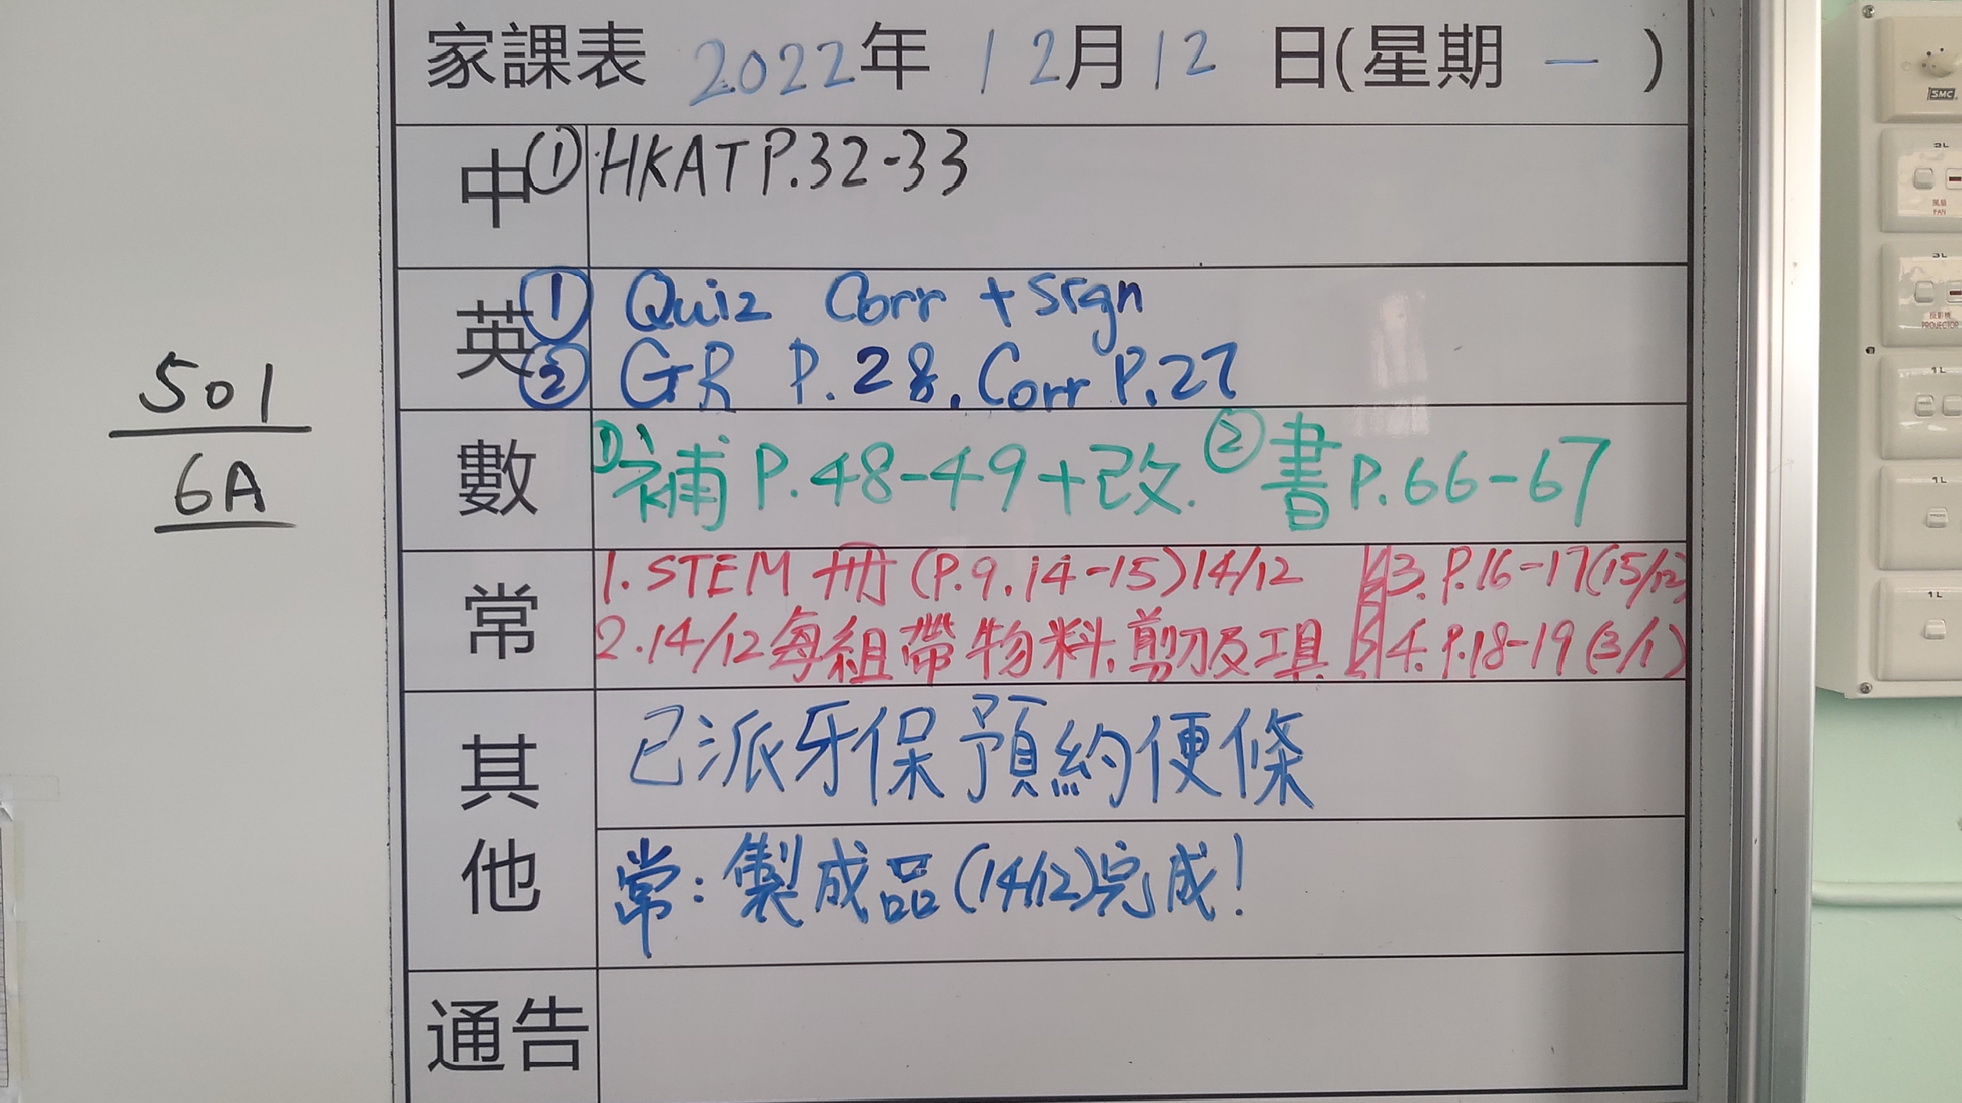 家課表 2022年 12月12 日(星期 一 )
中 ① HKAT P.32-33
英 ① Quiz Corr + sign
② GR P.28, Corr P.27
數 ① 補 P.48-49+改. ② 書 P.66-67
常 1. STEM 冊 (P.9, 14-15) 14/12
2. 14/12 每組帶物料、剪刀及工具
3. P.16-17 (15/12)
4. P.18-19 (3/1)
其他 已派牙保預約便條
常: 製成品 (14/12) 完成!
通告
501
6A
SMC
2L
風扇
FAN
2L
投影機
PROJECTOR
1L
1L
1L